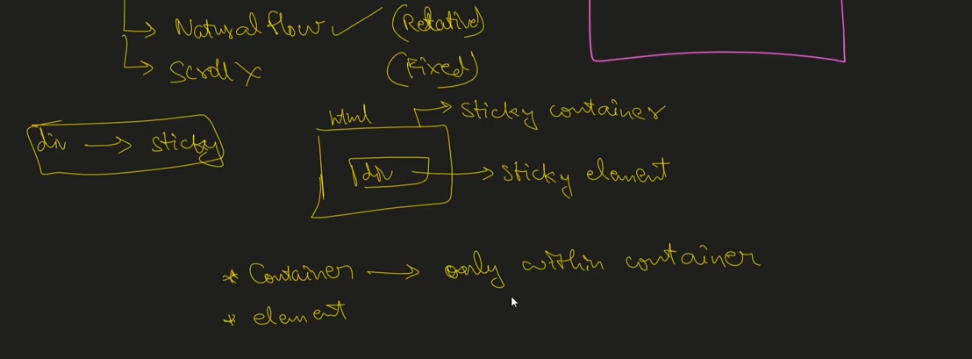 ↳ Natural flow ✓ (Relative)
↳ Scroll ✗ (Fixed)
html → Sticky container
div → sticky
div → Sticky elament
* Container → only within container
* element